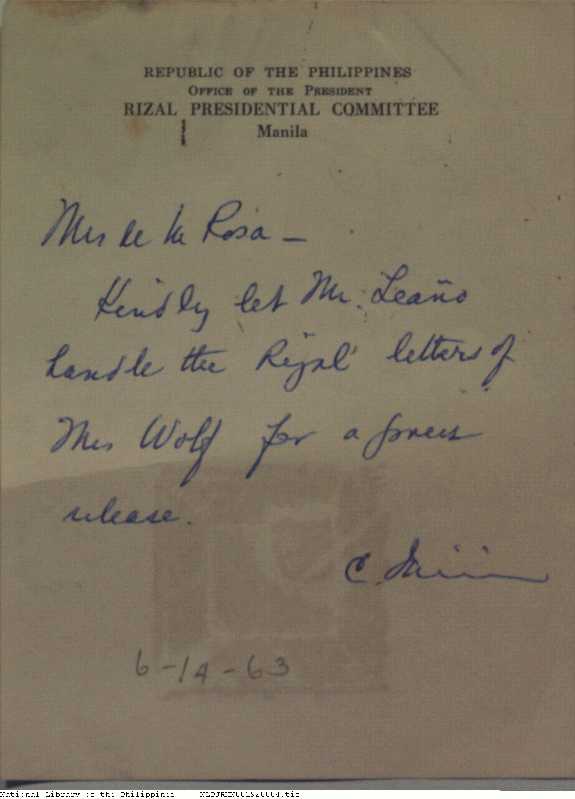 REPUBLIC OF THE PHILIPPINES
OFFICE OF THE PRESIDENT
RIZAL PRESIDENTIAL COMMITTEE
Manila
Mrs de la Rosa —
Kindly let Mr. Leaño
handle the Rizal letters of
Mrs Wolf for a press
release.
C.
6-14-63
National Library of the Philippines